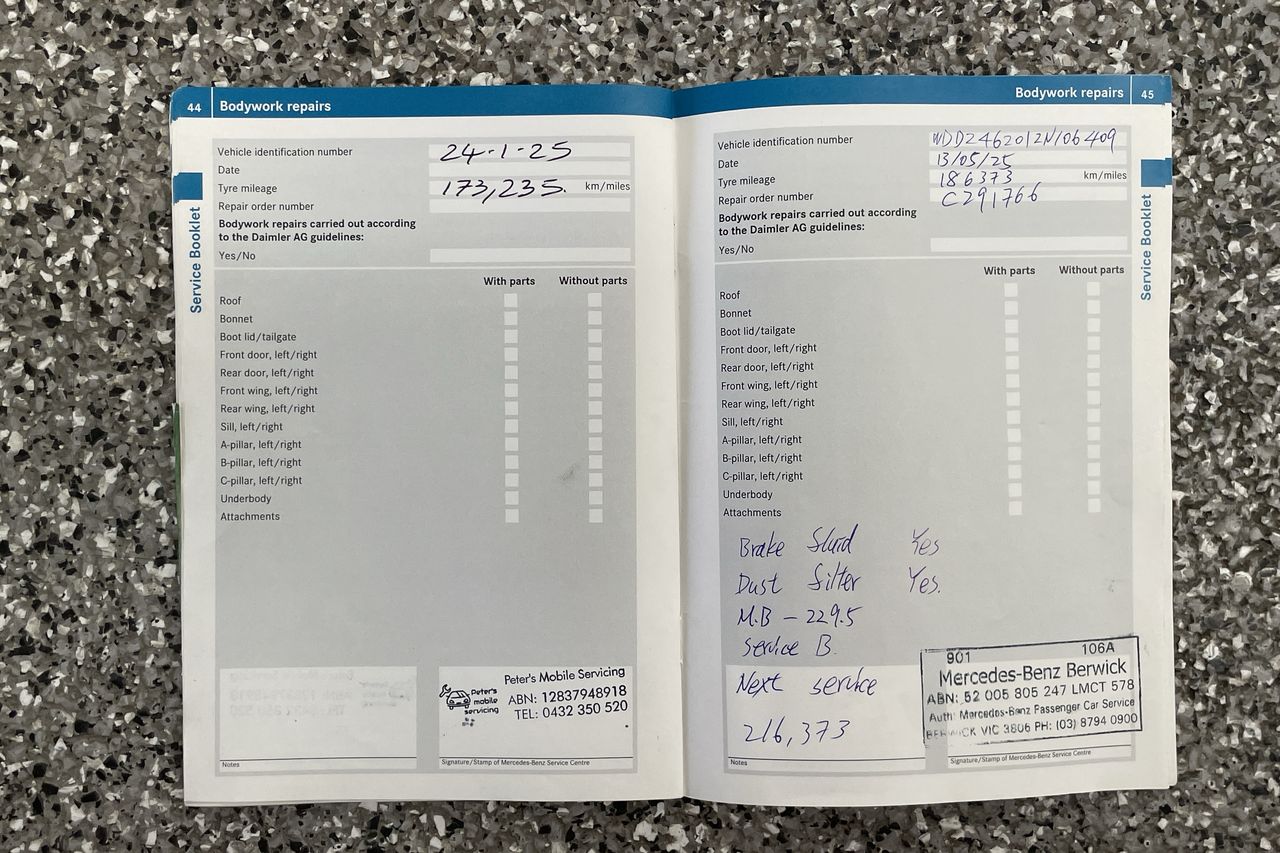 44 Bodywork repairs
Service Booklet
Vehicle identification number 24-1-25
Date
Tyre mileage 173,235. km/miles
Repair order number
Bodywork repairs carried out according
to the Daimler AG guidelines:
Yes/No
With parts Without parts
Roof
Bonnet
Boot lid/tailgate
Front door, left/right
Rear door, left/right
Front wing, left/right
Rear wing, left/right
Sill, left/right
A-pillar, left/right
B-pillar, left/right
C-pillar, left/right
Underbody
Attachments
Peter's Mobile Servicing
ABN: 12837948918
TEL: 0432 350 520
Peter's
mobile
servicing
Notes
Signature/Stamp of Mercedes-Benz Service Centre
Bodywork repairs 45
Service Booklet
Vehicle identification number WDD2462012N106409
Date 13/05/25
Tyre mileage 186373 km/miles
Repair order number C291766
Bodywork repairs carried out according
to the Daimler AG guidelines:
Yes/No
With parts Without parts
Roof
Bonnet
Boot lid/tailgate
Front door, left/right
Rear door, left/right
Front wing, left/right
Rear wing, left/right
Sill, left/right
A-pillar, left/right
B-pillar, left/right
C-pillar, left/right
Underbody
Attachments
Brake fluid Yes
Dust filter Yes.
M.B - 229.5
Service B.
Next service
216,373
901 106A
Mercedes-Benz Berwick
ABN: 52 005 805 247 LMCT 578
Auth: Mercedes-Benz Passenger Car Service
BERWICK VIC 3806 PH: (03) 8794 0900
Notes
Signature/Stamp of Mercedes-Benz Service Centre